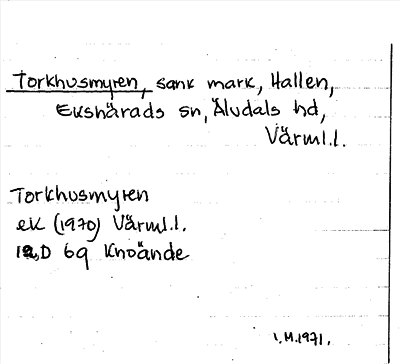 Torkhusmyren, sank mark, Hallen,
Ekshärads sn, Älvdals hd,
Värml.l.
Torkhusmyren
ek (1970) Värml.l.
12D 6g Knoände
I.M.1971.